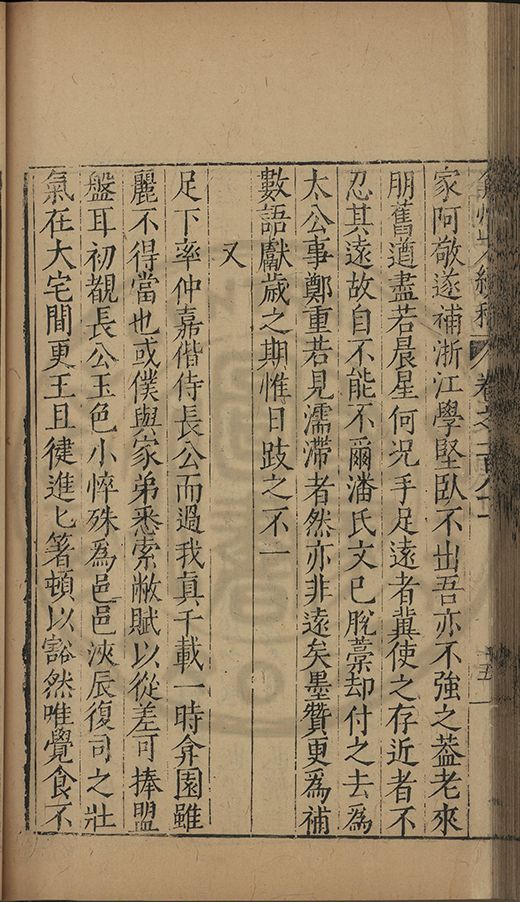 弇州山人續稿 卷之一百八十一 十五
家阿敬遂補浙江學堅臥不出吾亦不強之葢老來
朋舊遒盡若晨星何況手足遠者冀使之存近者不
忍其遠故自不能不爾潘氏文已脫藁却付之去為
太公事鄭重若見濡滯者然亦非遠矣墨贊更為補
數語獻歲之期惟日跂之不一
又
足下率仲嘉偕侍長公而過我真千載一時弇園雖
麗不得當也或僕與家弟悉索敝賦以從差可捧盟
盤耳初覩長公玉色小悴殊為邑邑浹辰復司之壯
氣在大宅間更王且健進匕箸頓以豁然唯覺食不